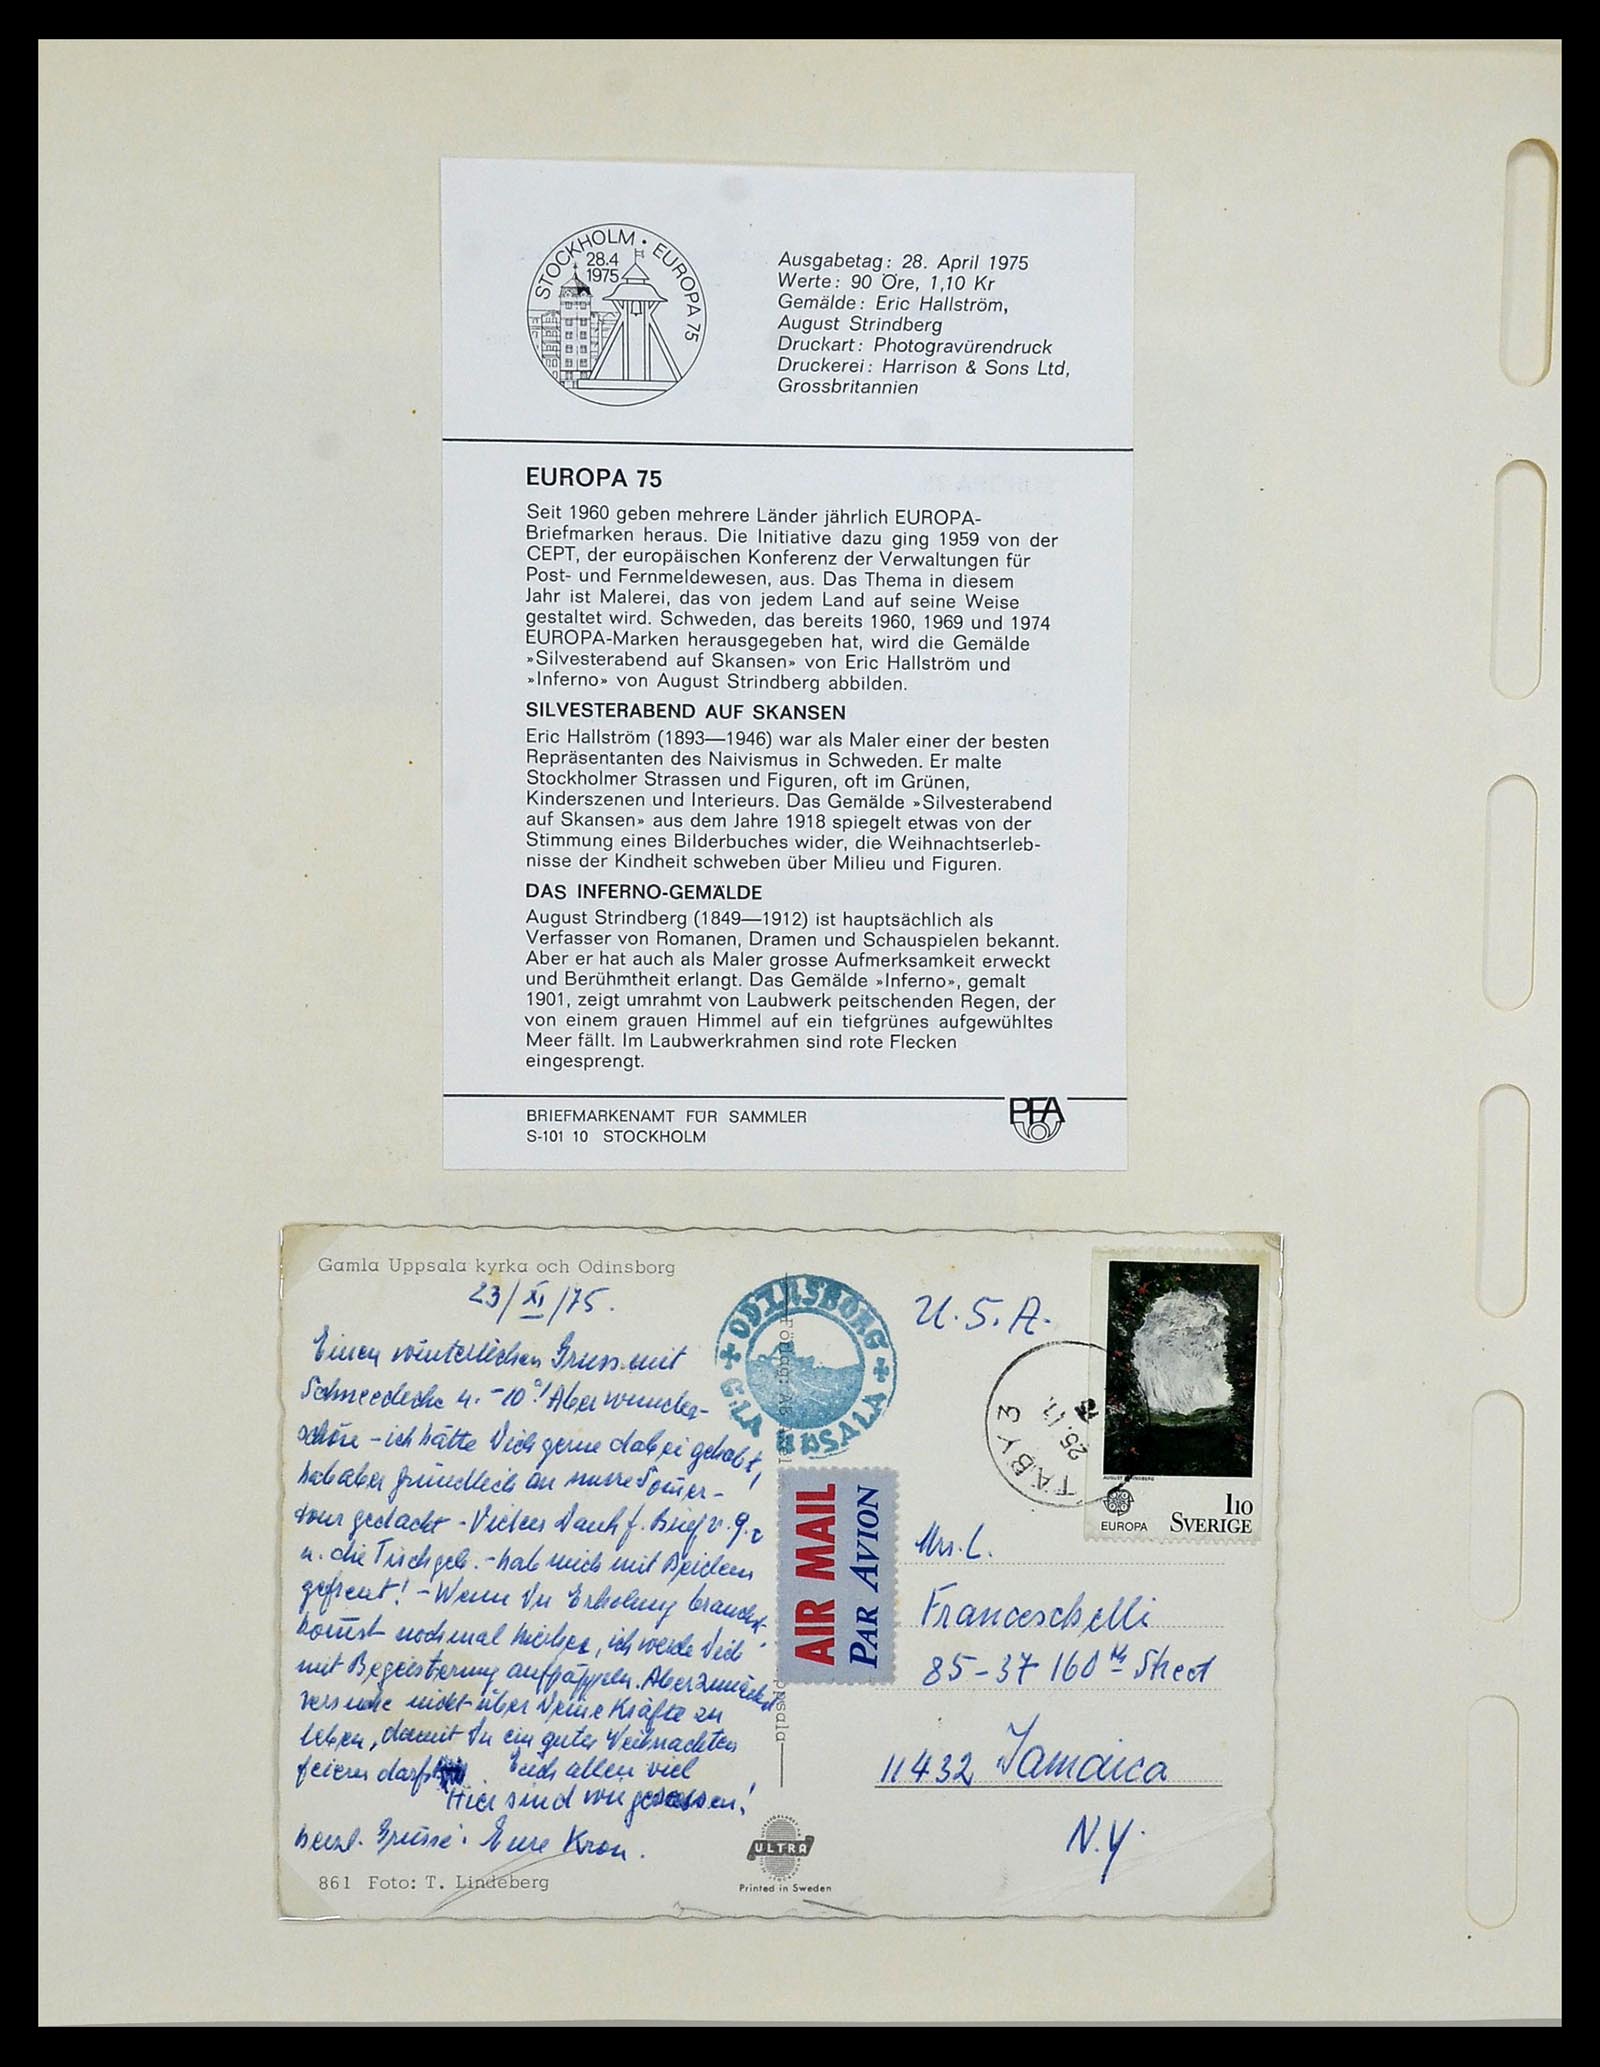 STOCKHOLM · EUROPA 75
28.4
1975
Ausgabetag: 28. April 1975
Werte: 90 Öre, 1,10 Kr
Gemälde: Eric Hallström,
August Strindberg
Druckart: Photogravürendruck
Druckerei: Harrison & Sons Ltd,
Grossbritannien
EUROPA 75
Seit 1960 geben mehrere Länder jährlich EUROPA-
Briefmarken heraus. Die Initiative dazu ging 1959 von der
CEPT, der europäischen Konferenz der Verwaltungen für
Post- und Fernmeldewesen, aus. Das Thema in diesem
Jahr ist Malerei, das von jedem Land auf seine Weise
gestaltet wird. Schweden, das bereits 1960, 1969 und 1974
EUROPA-Marken herausgegeben hat, wird die Gemälde
»Silvesterabend auf Skansen» von Eric Hallström und
»Inferno» von August Strindberg abbilden.
SILVESTERABEND AUF SKANSEN
Eric Hallström (1893—1946) war als Maler einer der besten
Repräsentanten des Naivismus in Schweden. Er malte
Stockholmer Strassen und Figuren, oft im Grünen,
Kinderszenen und Interieurs. Das Gemälde »Silvesterabend
auf Skansen» aus dem Jahre 1918 spiegelt etwas von der
Stimmung eines Bilderbuches wider, die Weihnachtserleb-
nisse der Kindheit schweben über Milieu und Figuren.
DAS INFERNO-GEMÄLDE
August Strindberg (1849—1912) ist hauptsächlich als
Verfasser von Romanen, Dramen und Schauspielen bekannt.
Aber er hat auch als Maler grosse Aufmerksamkeit erweckt
und Berühmtheit erlangt. Das Gemälde »Inferno», gemalt
1901, zeigt umrahmt von Laubwerk peitschenden Regen, der
von einem grauen Himmel auf ein tiefgrünes aufgewühltes
Meer fällt. Im Laubwerkrahmen sind rote Flecken
eingesprengt.
BRIEFMARKENAMT FÜR SAMMLER
S-101 10 STOCKHOLM
PFA
Gamla Uppsala kyrka och Odinsborg
23/XI/75.
Einen winterlichen Gruss mit
Schneedecke u. -10°! Aber wunder-
schön - ich hätte Dich gerne dabei gehabt,
hab aber gründlich an unsre Somer-
tour gedacht - Vielen Dank f. Brief v. 9.
u. die Tischgeb. - hab mich mit Beidem
gefreut! - Wenn Du Erholung brauchst,
komst nochmal hierher, ich werde Dich
mit Begeisterung aufpäppeln. Aber zunächst
versuche nicht über Deine Kräfte zu
leben, damit Du ein gutes Weihnachten
feiern darfst. Euch allen viel
Hier sind wir gesessen!
herzl. Grüsse! Eure Kron.
861 Foto: T. Lindeberg
ODINSBORG
G:LA UPSALA
Förlag: AB
psala
AIR MAIL
PAR AVION
ULTRA
Printed in Sweden
U.S.A.
TÄBY 3
25.11.
EUROPA
110
SVERIGE
Mrs. L.
Franceschelli
85-37 160th Street
11432 Jamaica
N.Y.